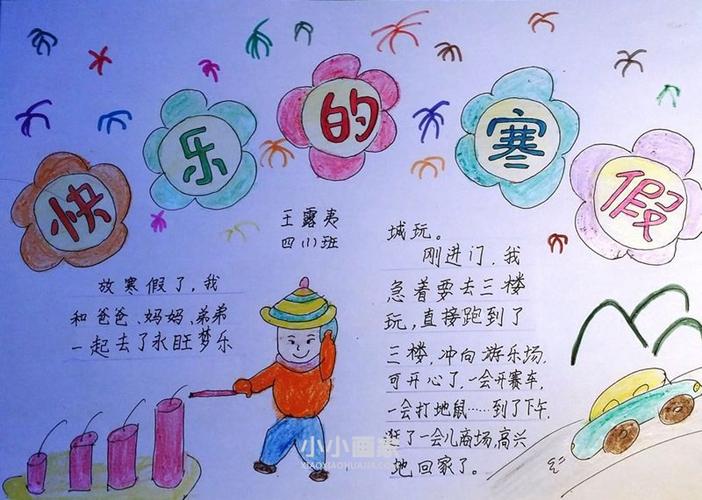 快乐的寒假
王露夷
四(1)班
放寒假了，我
和爸爸、妈妈、弟弟
一起去了永旺梦乐
城玩。
刚进门，我
急着要去三楼
玩，直接跑到了
三楼，冲向游乐场，
可开心了，一会开赛车，
一会打地鼠……到了下午，
逛了一会儿商场，高兴
地回家了。
小小画家
XIAOXIAOHUAJIA.COM